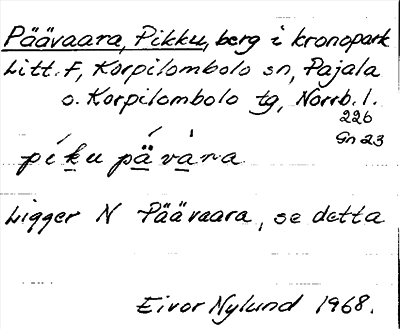 Päävaara, Pikku, berg i kronopark
Litt. F, Korpilombolo sn, Pajala
o. Korpilombolo tg, Norrb. l.
226
Gn 23
píku pävàra
Ligger N Päävaara, se detta
Eivor Nylund 1968.